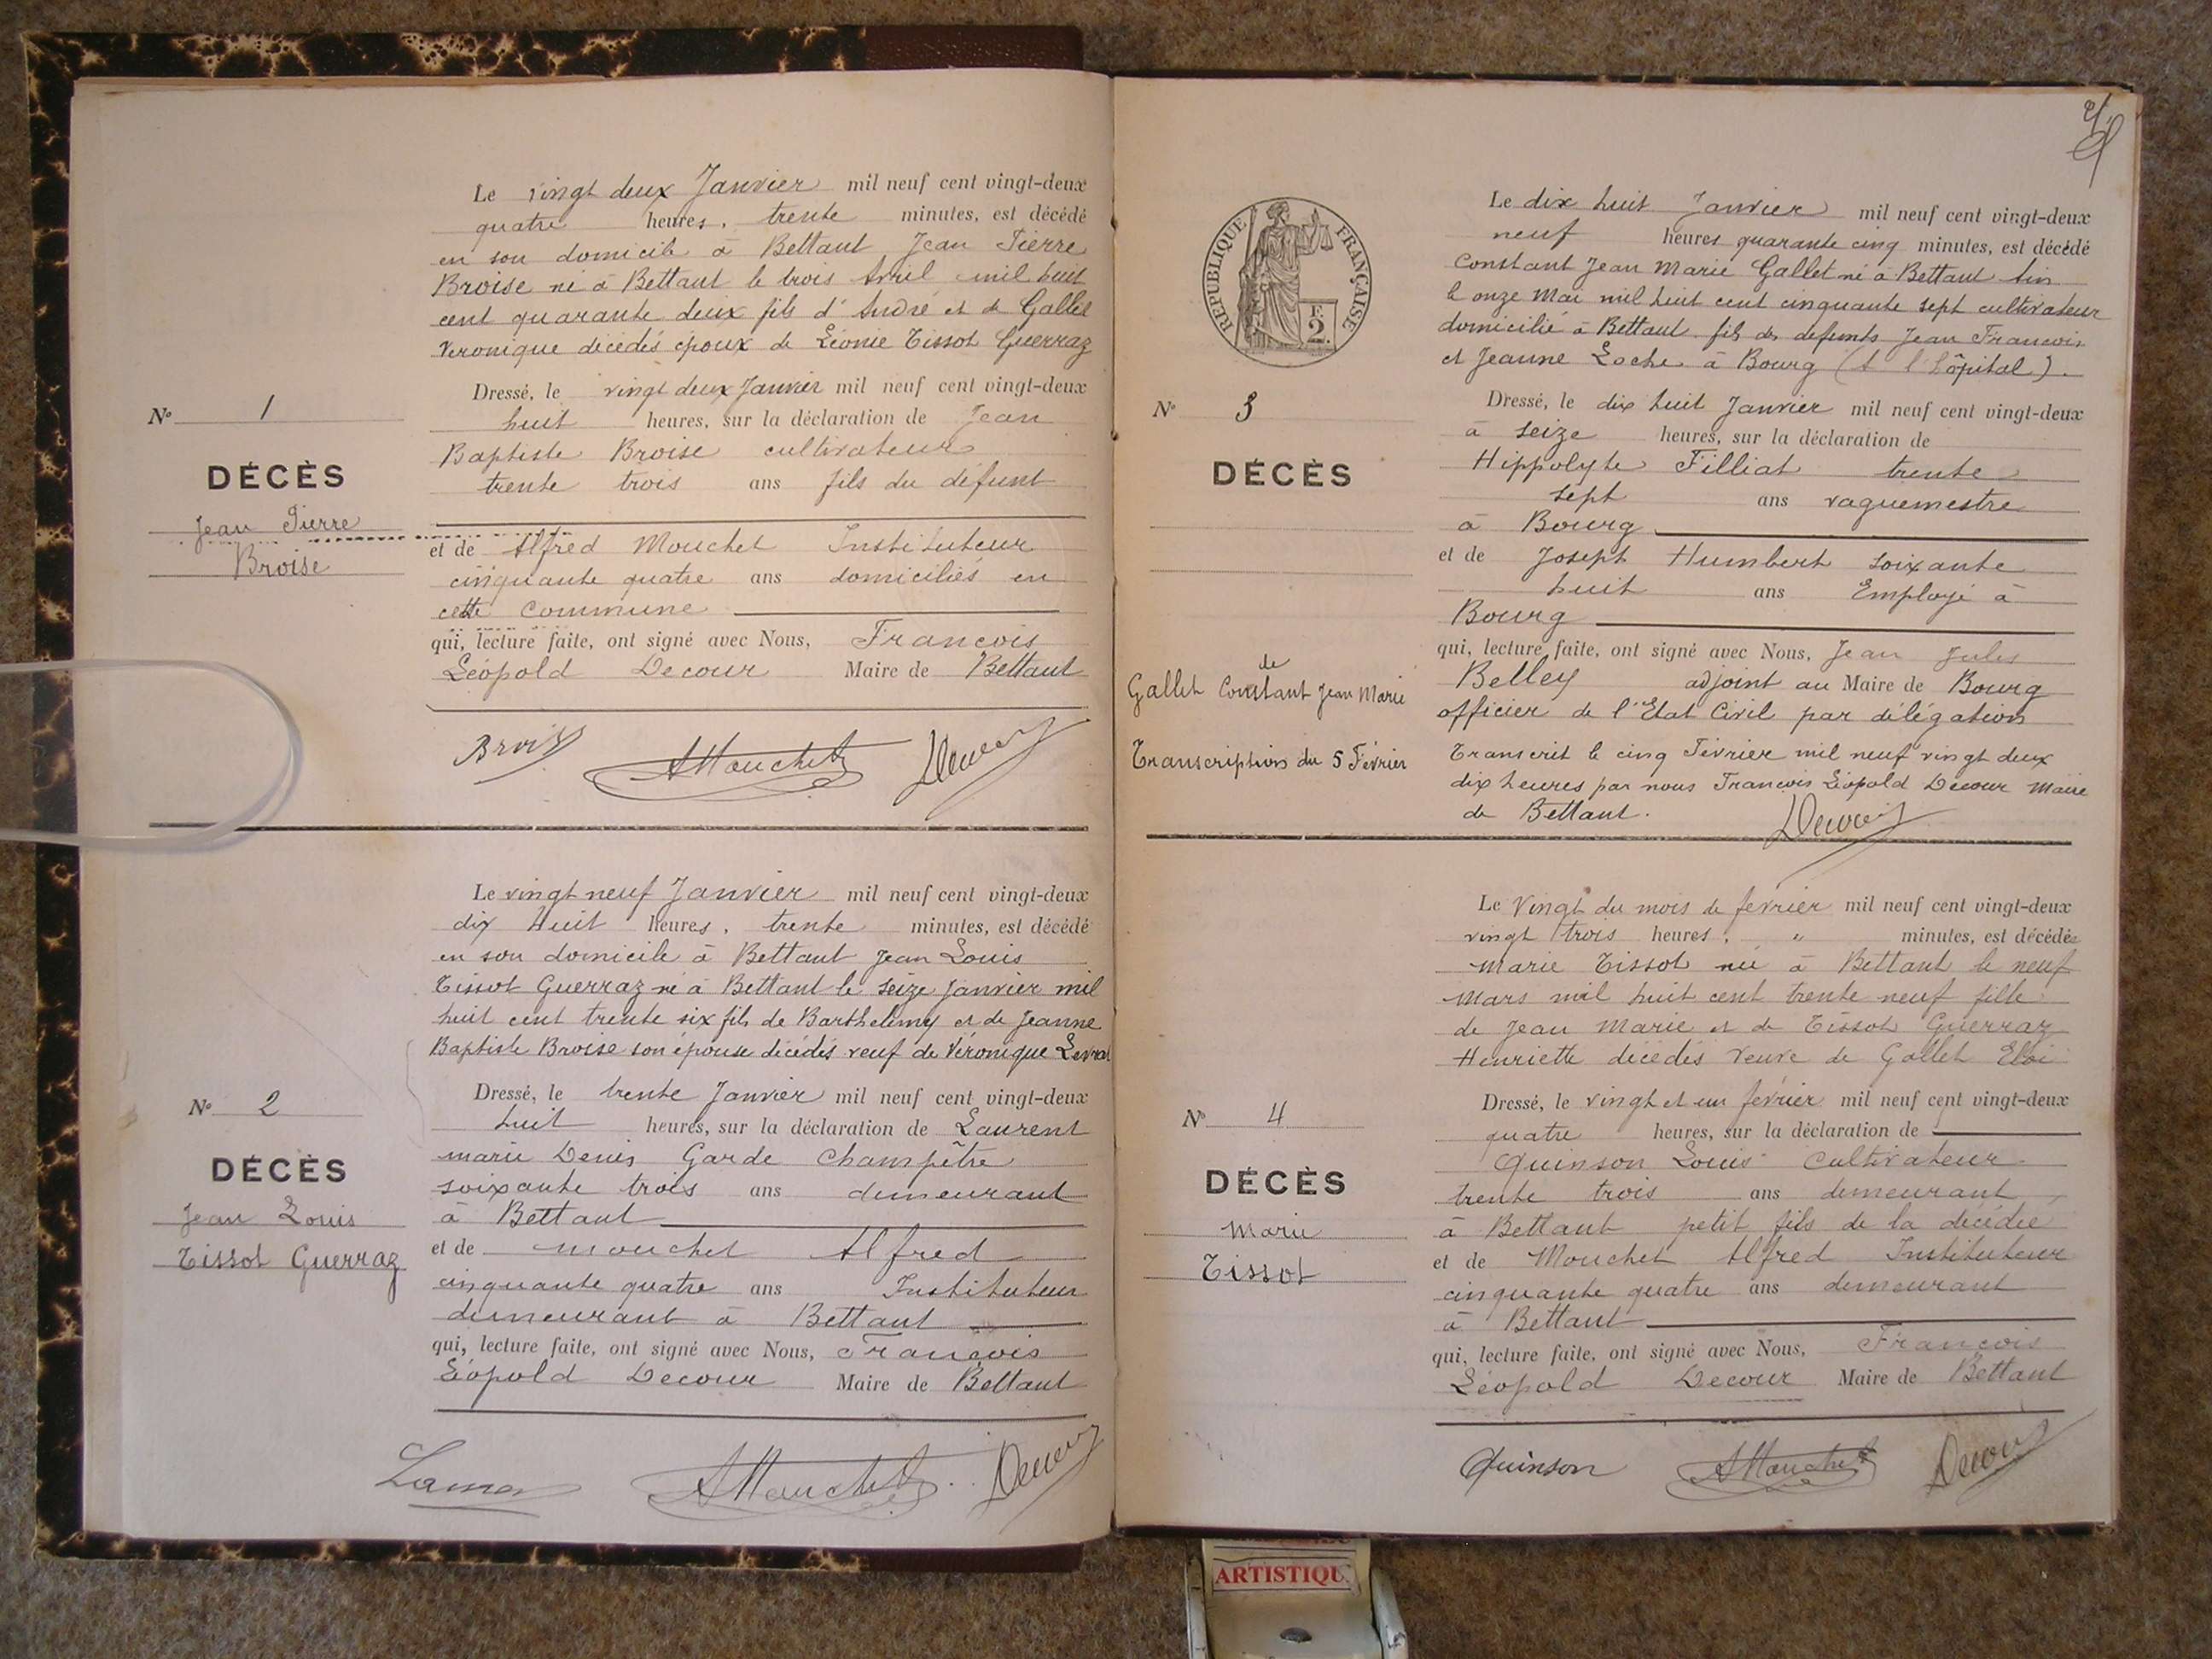 Le vingt deux Janvier mil neuf cent vingt-deux
quatre heures, trente minutes, est décédé
en son domicile à Bettant Jean Pierre
Broise né à Bettant le trois Avril mil huit
cent quarante deux fils d'André et de Gallet
Veronique décédés époux de Léonie Tissot Guerraz
Dressé, le vingt deux Janvier mil neuf cent vingt-deux
huit heures, sur la déclaration de Jean
Baptiste Broise cultivateur
trente trois ans fils du défunt
et de Alfred Mouchet Instituteur
cinquante quatre ans domiciliés en
cette commune
qui, lecture faite, ont signé avec Nous, François
Léopold Decour Maire de Bettant
N° 1
DÉCÈS
Jean Pierre
Broise
Broise
AMouchet
Decour
Le vingt neuf Janvier mil neuf cent vingt-deux
dix Huit heures, trente minutes, est décédé
en son domicile à Bettant Jean Louis
Tissot Guerraz né à Bettant le seize janvier mil
huit cent trente six fils de Barthelémy et de Jeanne
Baptiste Broise son épouse décédés veuf de Véronique Levrat
Dressé, le trente Janvier mil neuf cent vingt-deux
huit heures, sur la déclaration de Laurent
marie Denis Garde Champêtre
soixante trois ans demeurant
à Bettant
et de mouchet Alfred
cinquante quatre ans Instituteur
demeurant à Bettant
qui, lecture faite, ont signé avec Nous, François
Léopold Decour Maire de Bettant
N° 2
DÉCÈS
Jean Louis
Tissot Guerraz
AMouchet
Decour
2
REPUBLIQUE FRANÇAISE
F.
2.
Le dix huit Janvier mil neuf cent vingt-deux
neuf heures quarante cinq minutes, est décédé
Constant Jean Marie Gallet né à Bettant Ain
le onze Mai mil huit cent cinquante sept cultivateur
domicilié à Bettant fils des defunts Jean François
et Jeanne Loche à Bourg (à l'hôpital).
Dressé, le dix huit Janvier mil neuf cent vingt-deux
à seize heures, sur la déclaration de
Hippolyte Filliat trente
sept ans vaguemestre
à Bourg
et de Joseph Humbert soixante
huit ans Employé à
Bourg
qui, lecture faite, ont signé avec Nous, Jean Jules
Belley adjoint au Maire de Bourg
officier de l'Etat Civil par délégation
Transcrit le cinq Février mil neuf vingt deux
dix heures par nous François Léopold Decour Maire
de Bettant.
Decour
N° 3
DÉCÈS
de
Gallet Constant Jean Marie
Transcription du 5 Février
Le Vingt du mois de fevrier mil neuf cent vingt-deux
vingt trois heures, " minutes, est décédée
Marie Tissot née à Bettant le neuf
Mars mil huit cent trente neuf fille
de Jean Marie et de Tissot Guerraz
Henriette décédés veuve de Gallet Eloi
Dressé, le vingt et un février mil neuf cent vingt-deux
quatre heures, sur la déclaration de
Quinson Louis cultivateur
trente trois ans demeurant
à Bettant petit fils de la décédée
et de Mouchet Alfred Instituteur
cinquante quatre ans demeurant
à Bettant
qui, lecture faite, ont signé avec Nous, François
Léopold Decour Maire de Bettant
N° 4
DÉCÈS
Marie
Tissot
Quinson
AMouchet
Decour
ARTISTIQU